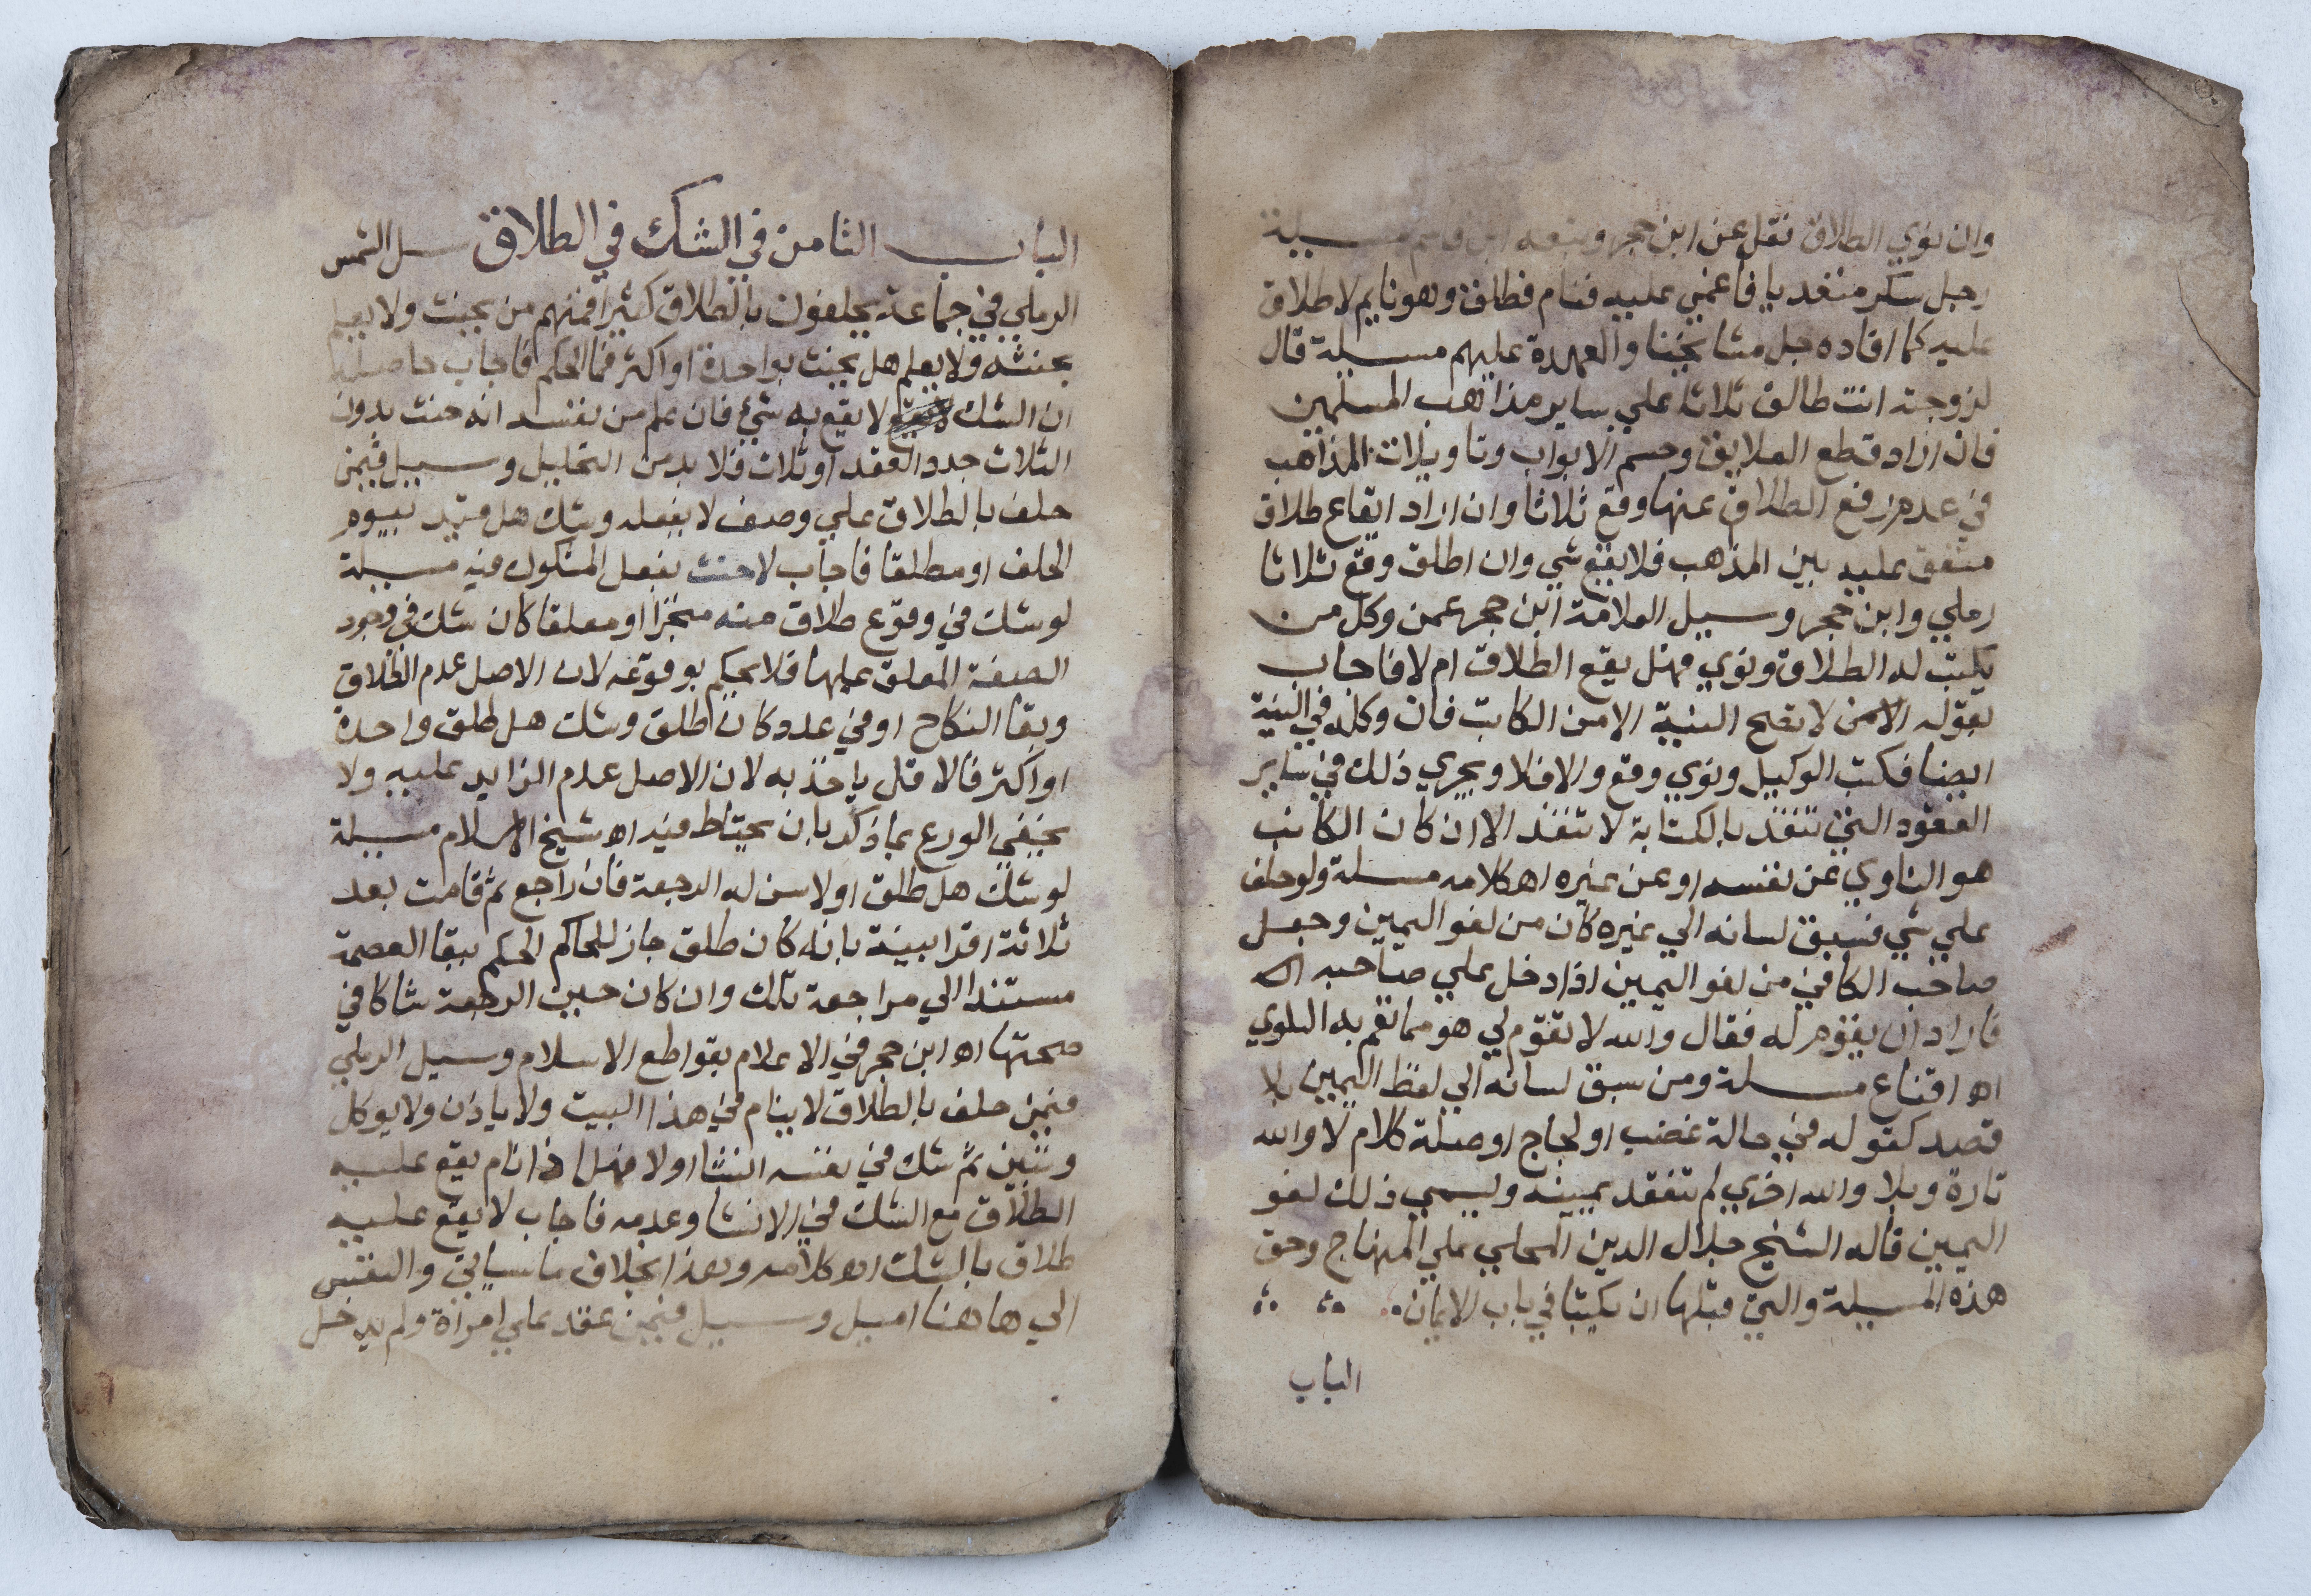 وان نوي الطلاق نقل عن ابن حجر وتبعه ابن قاسم مسيلة
رجل سكر متعديا فاغمي عليه فنام فطلق وهو نايم لا طلاق
عليه كما افاده جل مشايخنا والعهدة عليهم مسيلة قال
لزوجته انت طالق ثلاثا علي ساير مذاهب المسلمين
فان اراد قطع العلايق وحسم الابواب وتاويلات المذاهب
في عدم رفع الطلاق عنها وقع ثلاثا وان اراد ايقاع طلاق
متفق عليه بين المذهب فلا يقع شي وان اطلق وقع ثلاثا
رملي وابن حجر وسيل العلامة ابن حجر عمن وكل من
يكتب له الطلاق ونوي فهل يقع الطلاق ام لا فاجاب
بقوله لا تصح النية الا من الكاتب فان وكله في النية
ايضا فكتب الوكيل ونوي وقع والا فلا ويجري ذلك في ساير
العقود التي تنفذ بالكتابة لا تنفذ الا ان كان الكاتب
هو الناوي عن نفسه او عن غيره اه كلامه مسلة ولو حلف
علي شي فسبق لسانه الي غيره كان من لغو اليمين وجعل
صاحب الكافي من لغو اليمين اذا دخل علي صاحبه
فاراد ان يقوم له فقال والله لا تقوم لي هو مما تعم به البلوي
اه اقناع مسلة ومن سبق لسانه الي لفظ اليمين بلا
قصد كقوله في حالة غضب او لجاج او صلة كلام لا والله
تارة وبلا والله اخري لم تنعقد يمينه ويسمي ذلك لغو
اليمين قاله الشيخ جلال الدين المحلي علي المنهاج وحق
هذه المسيلة والتي قبلها ان يكتبا في باب الايمان
الباب
الباب الثامن في الشك في الطلاق سل الشمس
الرملي في جماعة يحلفون بالطلاق كثيرا فمنهم من يحنث ولا يعلم
بحنثه ولا يعلم هل يحنث بواحدة او اكثر فما الحكم فاجاب حاصله
ان الشك لا يقع به شيء فان علم من نفسه انه حنث بدون
الثلاث جدد العقد او ثلاث فلا بد من التحليل وسيل فيمن
حلف بالطلاق علي وصف لا يفعله وشك هل قيد بيوم
الحلف او مطلقا فاجاب لا حنث بفعل المشكوك فيه مسيلة
لو شك في وقوع طلاق منه منجزا او معلقا كان شك في وجود
الصفة المعلق عليها فلا يحكم بوقوعه لان الاصل عدم الطلاق
وبقا النكاح او في عدد كان طلق وشك هل طلق واحدة
او اكثر فالاقل ياخذ به لان الاصل عدم الزايد عليه ولا
يخفي الورع بما ذكر بان يحتاط فيه اه شيخ الاسلام مسيلة
لو شك هل طلق او لا سن له الرجعة فان راجع ثم قامت بعد
ثلاثة اقرا بينة بانه كان طلق جاز للحاكم الحكم ببقا العصمة
مستندا الي مراجعة تلك وان كان حين الرجعة شاكا في
صحتها اه ابن حجر في الاعلام بقواطع الاسلام وسيل الرملي
فيمن حلف بالطلاق لا ينام في هذا البيت ولا ياذن ولا يوكل
وتبين ثم شك في نفسه انشا او لا فهل اذا نام يقع عليه
الطلاق مع الشك في الانشا وعدمه فاجاب لا يقع عليه
طلاق بالشك اه كلامه وهذا بخلاف ما سياتي والنفس
الي هاهنا اميل وسيل فيمن عقد علي امراة ولم يدخل